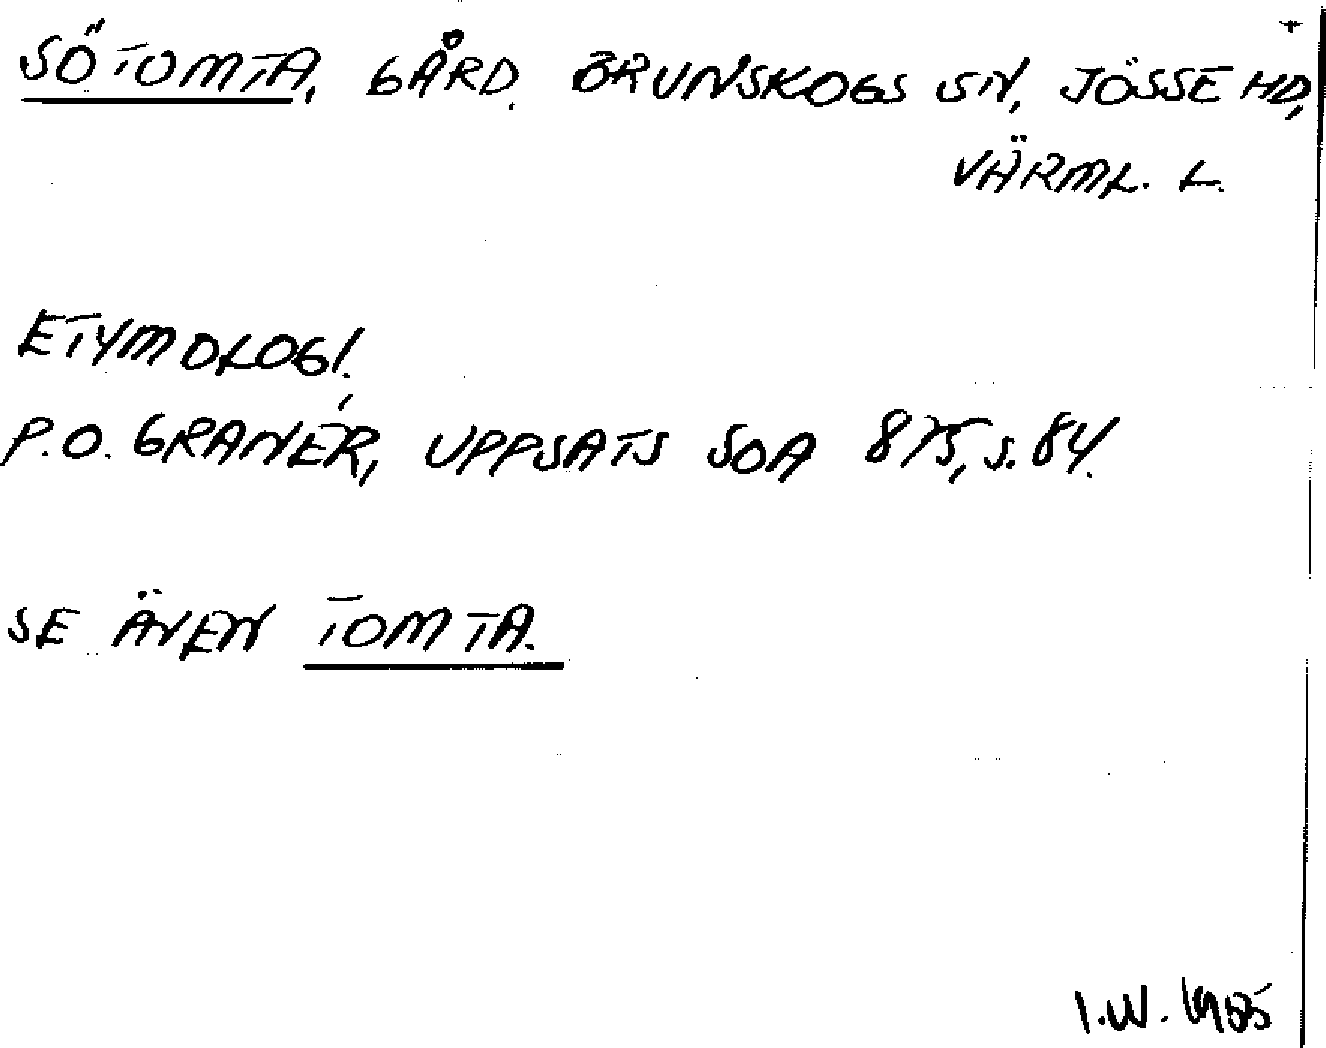 SÖTOMTA, GÅRD. BRUNSKOGS SN, JÖSSE HD,
VÄRML. L.
ETYMOLOGI.
P.O. GRANÉR, UPPSATS SOA 875, S. 84.
SE ÄVEN TOMTA.
I.W. 1985